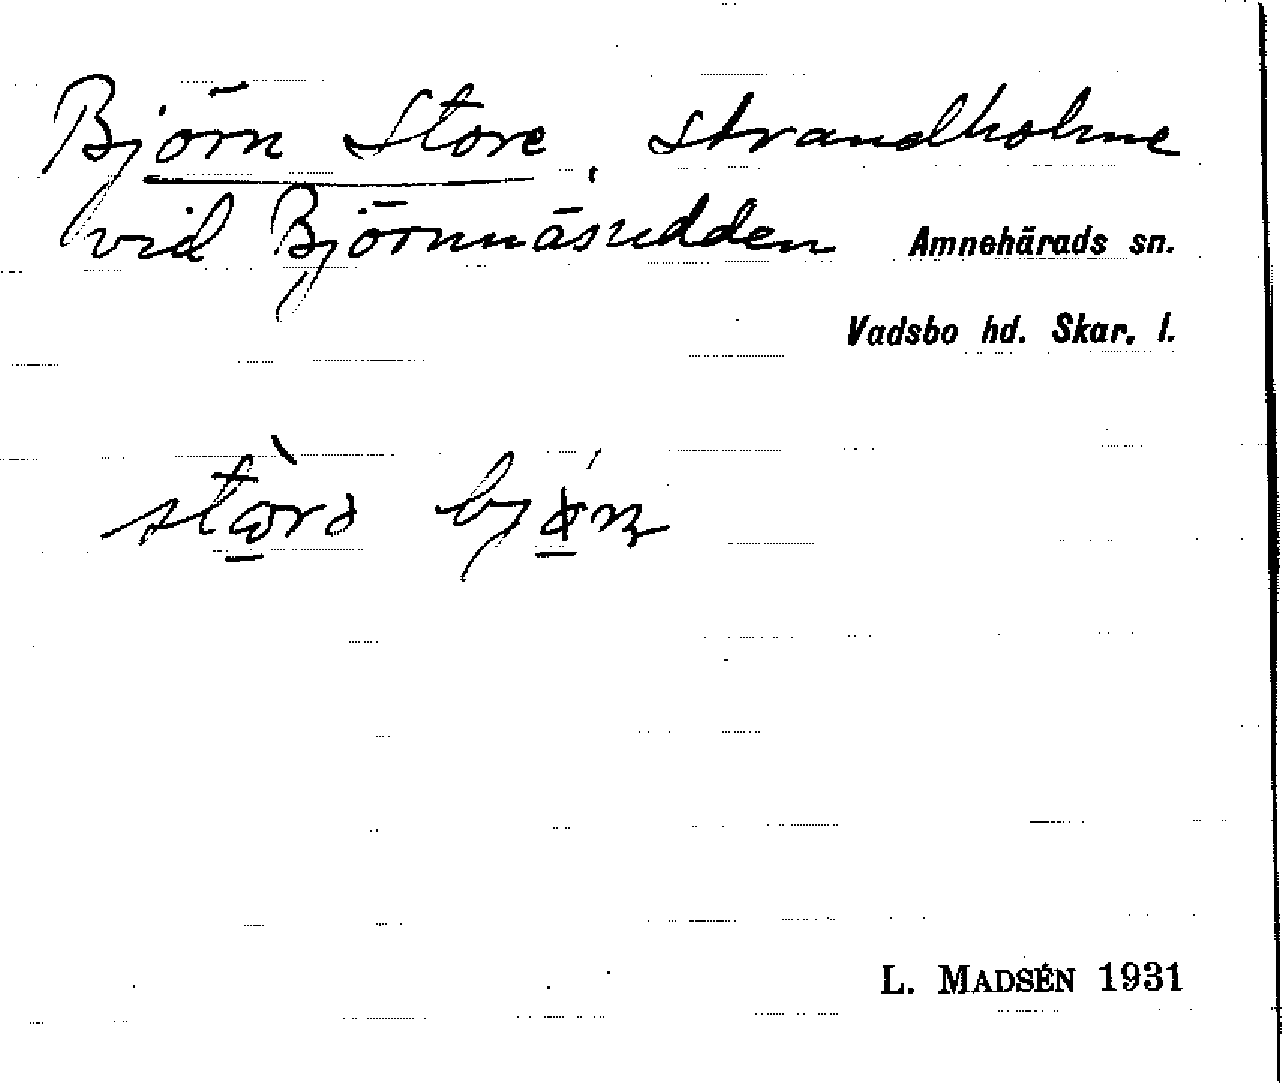 Björn Store, strandholme
vid Björnnäsudden Amnehärads sn.
Vadsbo hd. Skar. l.
L. MADSÉN 1931